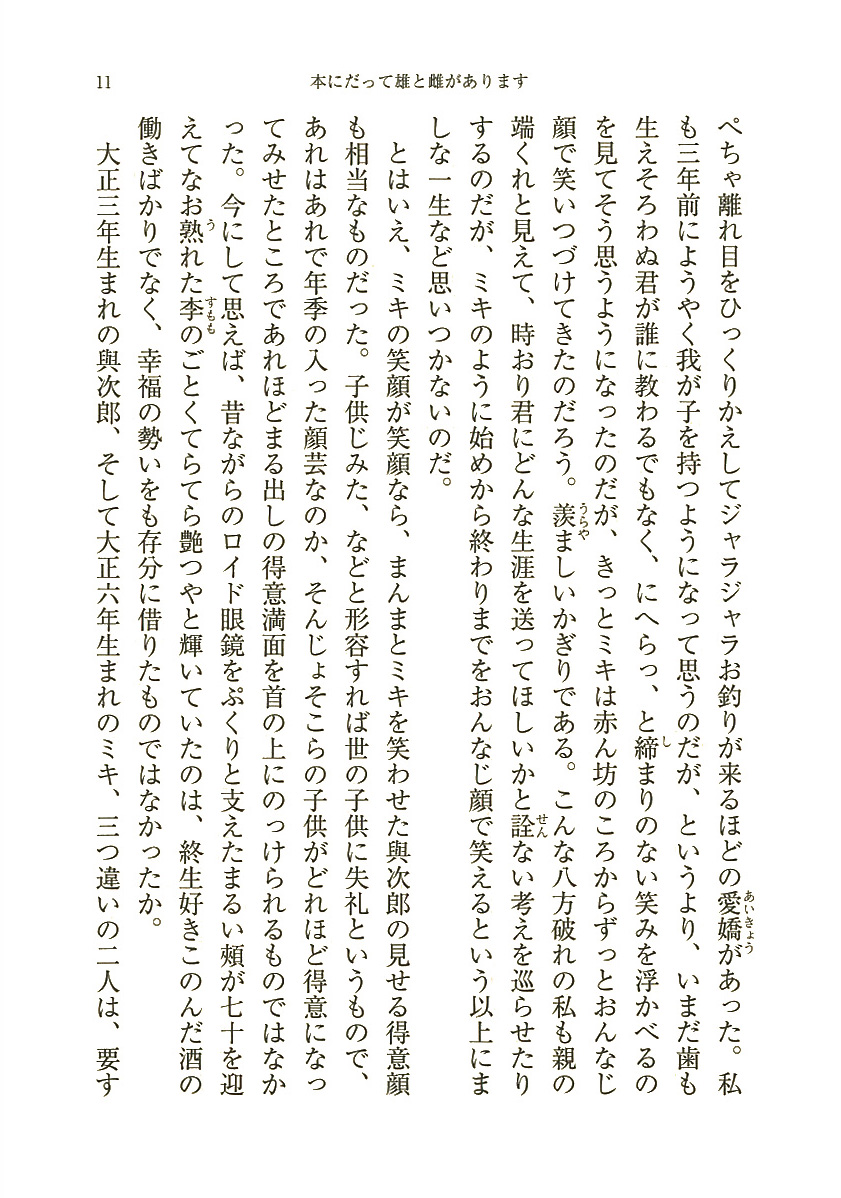 11
本にだって雄と雌があります
ぺちゃ離れ目をひっくりかえしてジャラジャラお釣りが来るほどの愛嬌があった。私
も三年前にようやく我が子を持つようになって思うのだが、というより、いまだ歯も
生えそろわぬ君が誰に教わるでもなく、にへらっ、と締まりのない笑みを浮かべるの
を見てそう思うようになったのだが、きっとミキは赤ん坊のころからずっとおんなじ
顔で笑いつづけてきたのだろう。羨ましいかぎりである。こんな八方破れの私も親の
端くれと見えて、時おり君にどんな生涯を送ってほしいかと詮ない考えを巡らせたり
するのだが、ミキのように始めから終わりまでをおんなじ顔で笑えるという以上にま
しな一生など思いつかないのだ。
とはいえ、ミキの笑顔が笑顔なら、まんまとミキを笑わせた與次郎の見せる得意顔
も相当なものだった。子供じみた、などと形容すれば世の子供に失礼というもので、
あれはあれで年季の入った顔芸なのか、そんじょそこらの子供がどれほど得意になっ
てみせたところであれほどまる出しの得意満面を首の上にのっけられるものではなか
った。今にして思えば、昔ながらのロイド眼鏡をぷくりと支えたまるい頰が七十を迎
えてなお熟れた李のごとくてらてら艶つやと輝いていたのは、終生好きこのんだ酒の
働きばかりでなく、幸福の勢いをも存分に借りたものではなかったか。
大正三年生まれの與次郎、そして大正六年生まれのミキ、三つ違いの二人は、要す